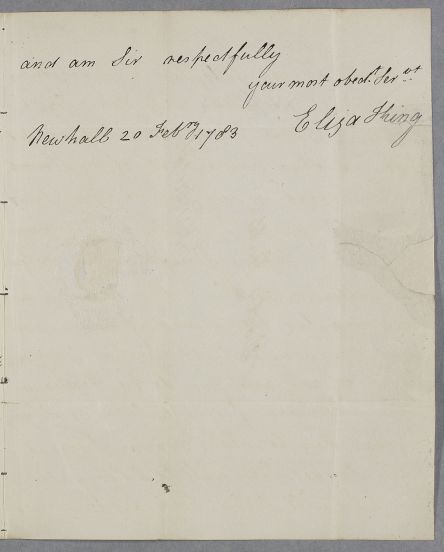 and am Sir respectfully
your most obed.t Ser.vt
Eliza Thing
Newhall 20 Febry 1783